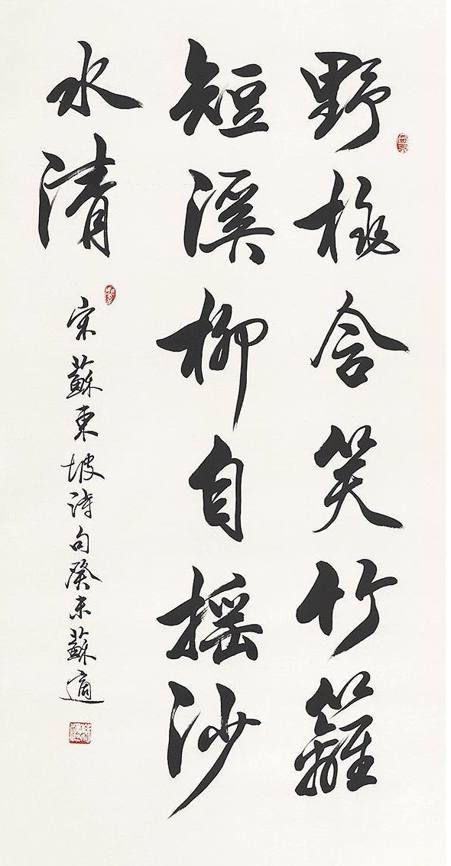 野桃含笑竹籬
短溪柳自摇沙
水清
宋蘇東坡詩句癸未蘇適